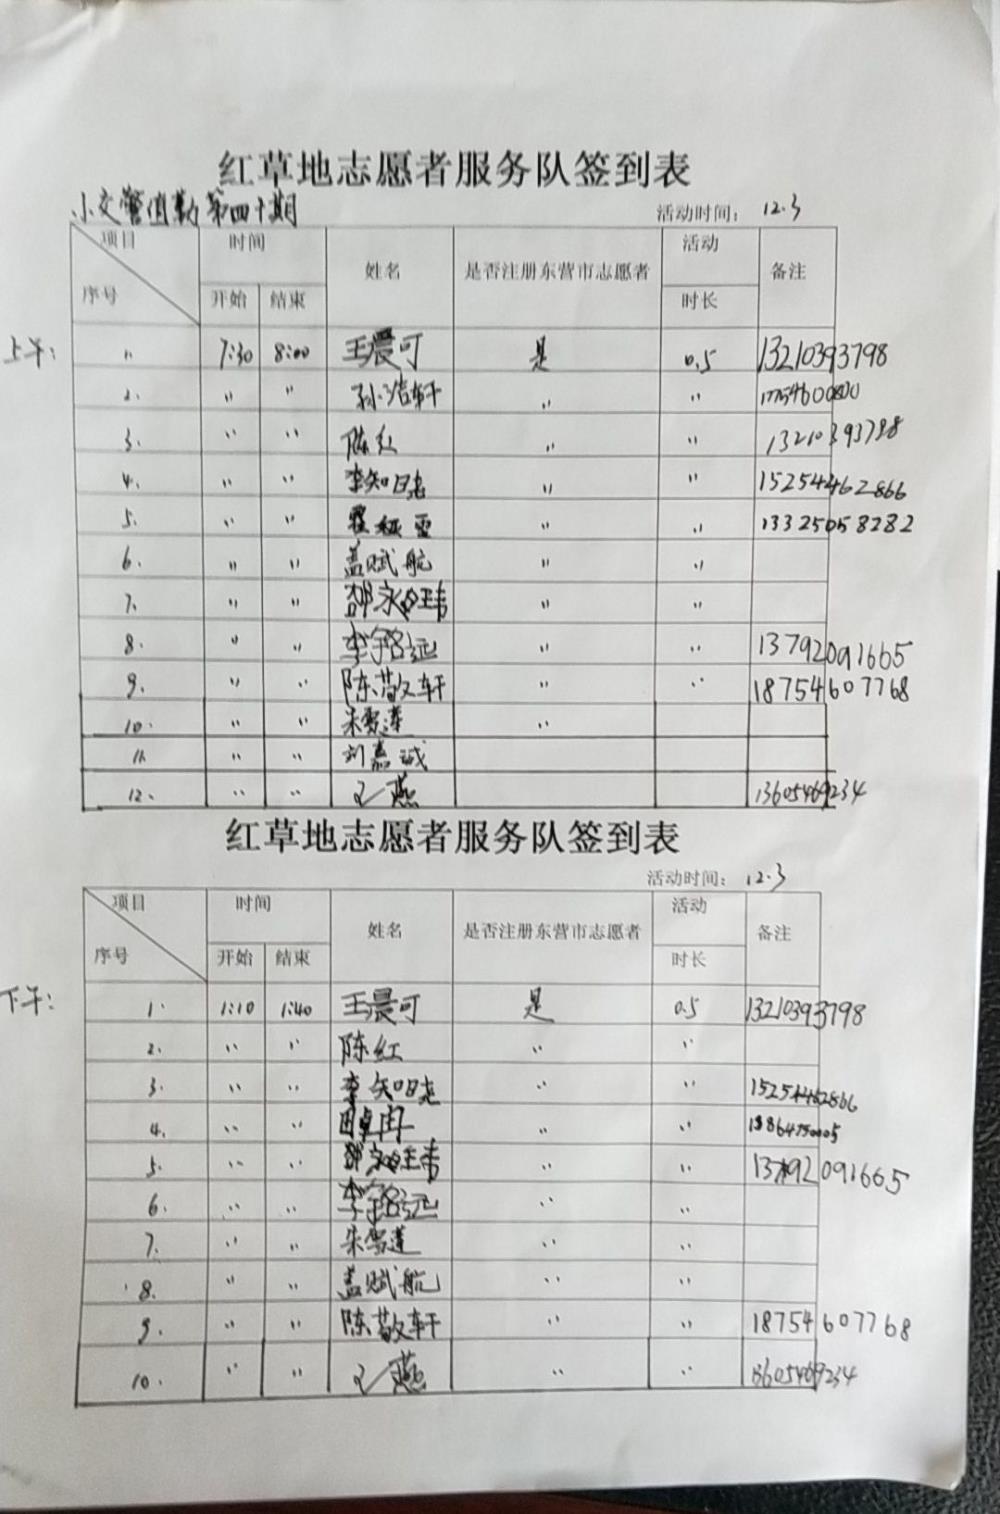 红草地志愿者服务队签到表
小交警值勤第四十期 活动时间： 12.3
项目 时间 姓名 是否注册东营市志愿者 活动 备注
序号 开始 结束 时长
上午： 1. 7:30 8:00 王晨可 是 0.5 13210393798
2. " " 孙浩轩 " "
3. " " 陈红 " " 13210393798
4. " " 李知晓 " " 15254462866
5. " " " " 13325058282
6. " " 盖赋航 " "
7. " " " "
8. " " 李铭远 " " 13792091665
9. " " 陈敬轩 " " 18754607768
10. " " 朱雪莲 "
11. " " 刘嘉诚
12. " " 王燕 13605469234
红草地志愿者服务队签到表
活动时间： 12.3
项目 时间 姓名 是否注册东营市志愿者 活动 备注
序号 开始 结束 时长
下午： 1. 1:10 1:40 王晨可 是 0.5 13210393798
2. " " 陈红 " "
3. " " 李知晓 " " 15254462866
4. " " " "
5. " " " " 13792091665
6. " " 李铭远 " "
7. " " 朱雪莲 " "
8. " " 盖赋航 " "
9. " " 陈敬轩 " " 18754607768
10. " " 王燕 " " 13605469234